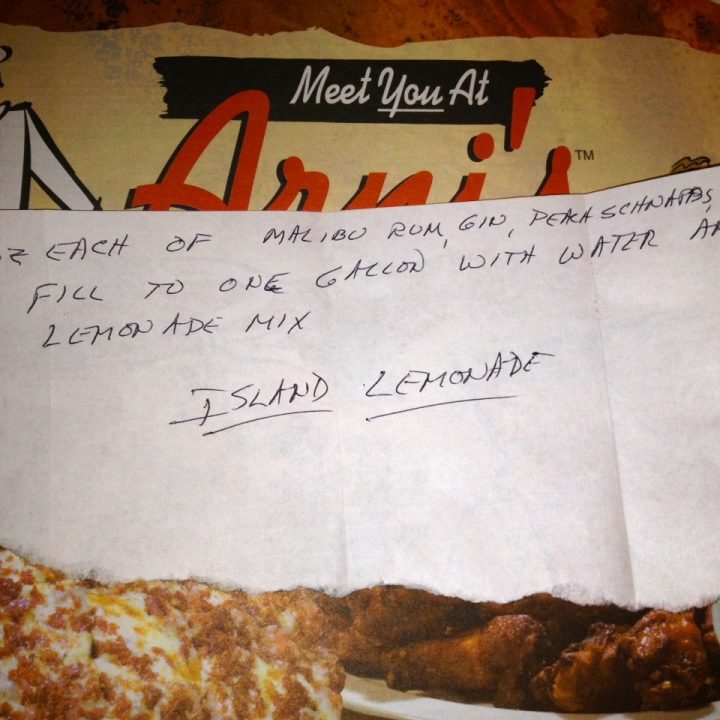 Meet You At
Arni's™
OZ EACH OF MALIBU RUM, GIN, PEACH SCHNAPPS,
FILL TO ONE GALLON WITH WATER AN
LEMONADE MIX
ISLAND LEMONADE